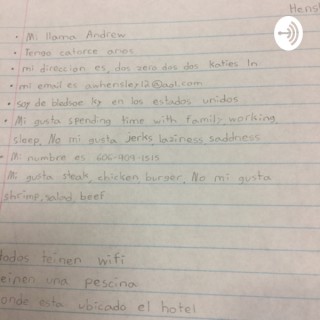 Hensl
• Mi llama Andrew
• Tengo catorce anos
• mi direccion es, dos vero dos dos Katies ln
• mi email es awhensley12@aol.com
• Soy de bledsoe ky en los estados unidos
• Mi gusta spending time with family working,
sleep, No mi gusta jerks laziness saddness
• Mi numbre es 606-909-1515
Mi gusta steak, chicken burger, No mi gusta
shrimp, salad, beef
todos teinen wifi
einen una pescina
onde esta ubicado el hotel